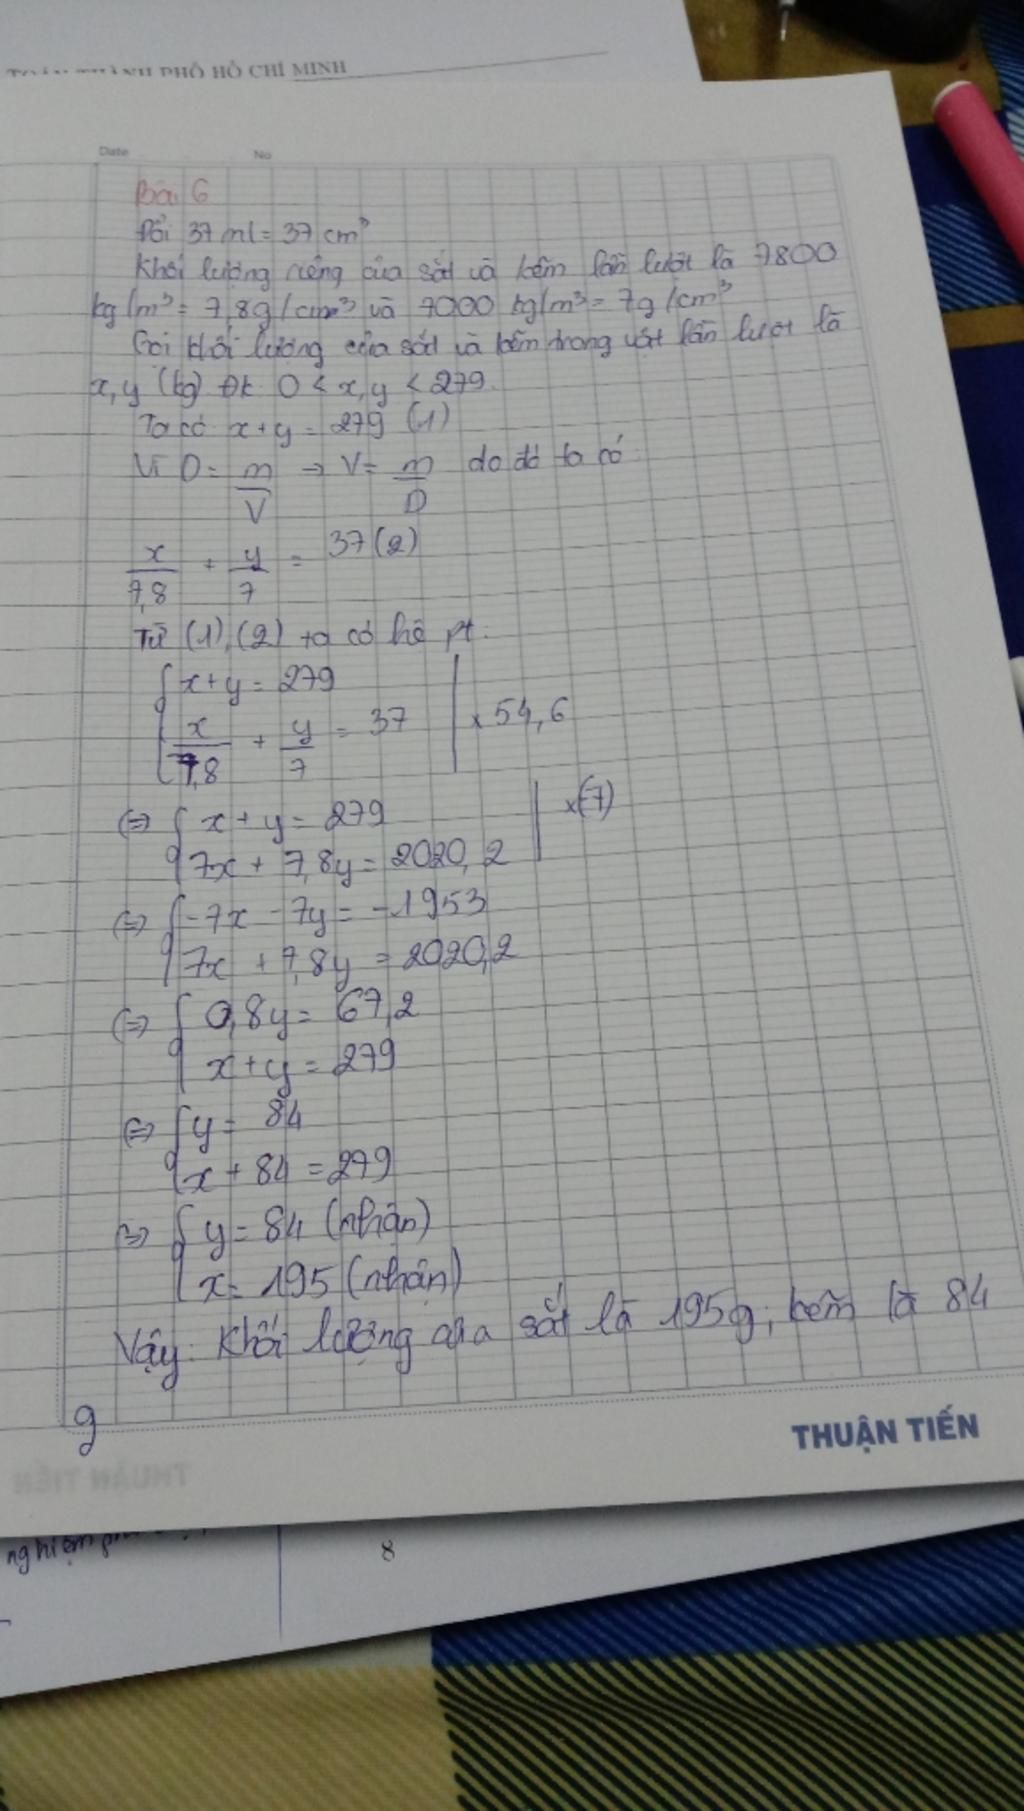 THÀNH PHỐ HỒ CHÍ MINH
Date No
Bài 6
Đổi 37 ml = 37 cm³
Khối lượng riêng của sắt và kẽm lần lượt là 7800
kg/m³ = 7,8g/cm³ và 7000 kg/m³ = 7g/cm³
Gọi khối lượng của sắt và kẽm trong vật lần lượt là
x, y (kg) ĐK 0 < x, y < 279
Ta có x + y = 279 (1)
Vì D = m/V → V = m/D do đó ta có:
x/7,8 + y/7 = 37 (2)
Từ (1), (2) ta có hệ pt:
{ x + y = 279
{ x/7,8 + y/7 = 37 | x 54,6
(=) { x + y = 279 | x(-7)
{ 7x + 7,8y = 2020,2
(=) { -7x - 7y = -1953
{ 7x + 7,8y = 2020,2
(=) { 0,8y = 67,2
{ x + y = 279
(=) { y = 84
{ x + 84 = 279
(=) { y = 84 (nhận)
{ x = 195 (nhận)
Vậy: Khối lượng của sắt là 195g, kẽm là 84
g
THUẬN TIẾN
THUẬN TIẾN
nghiệm
8